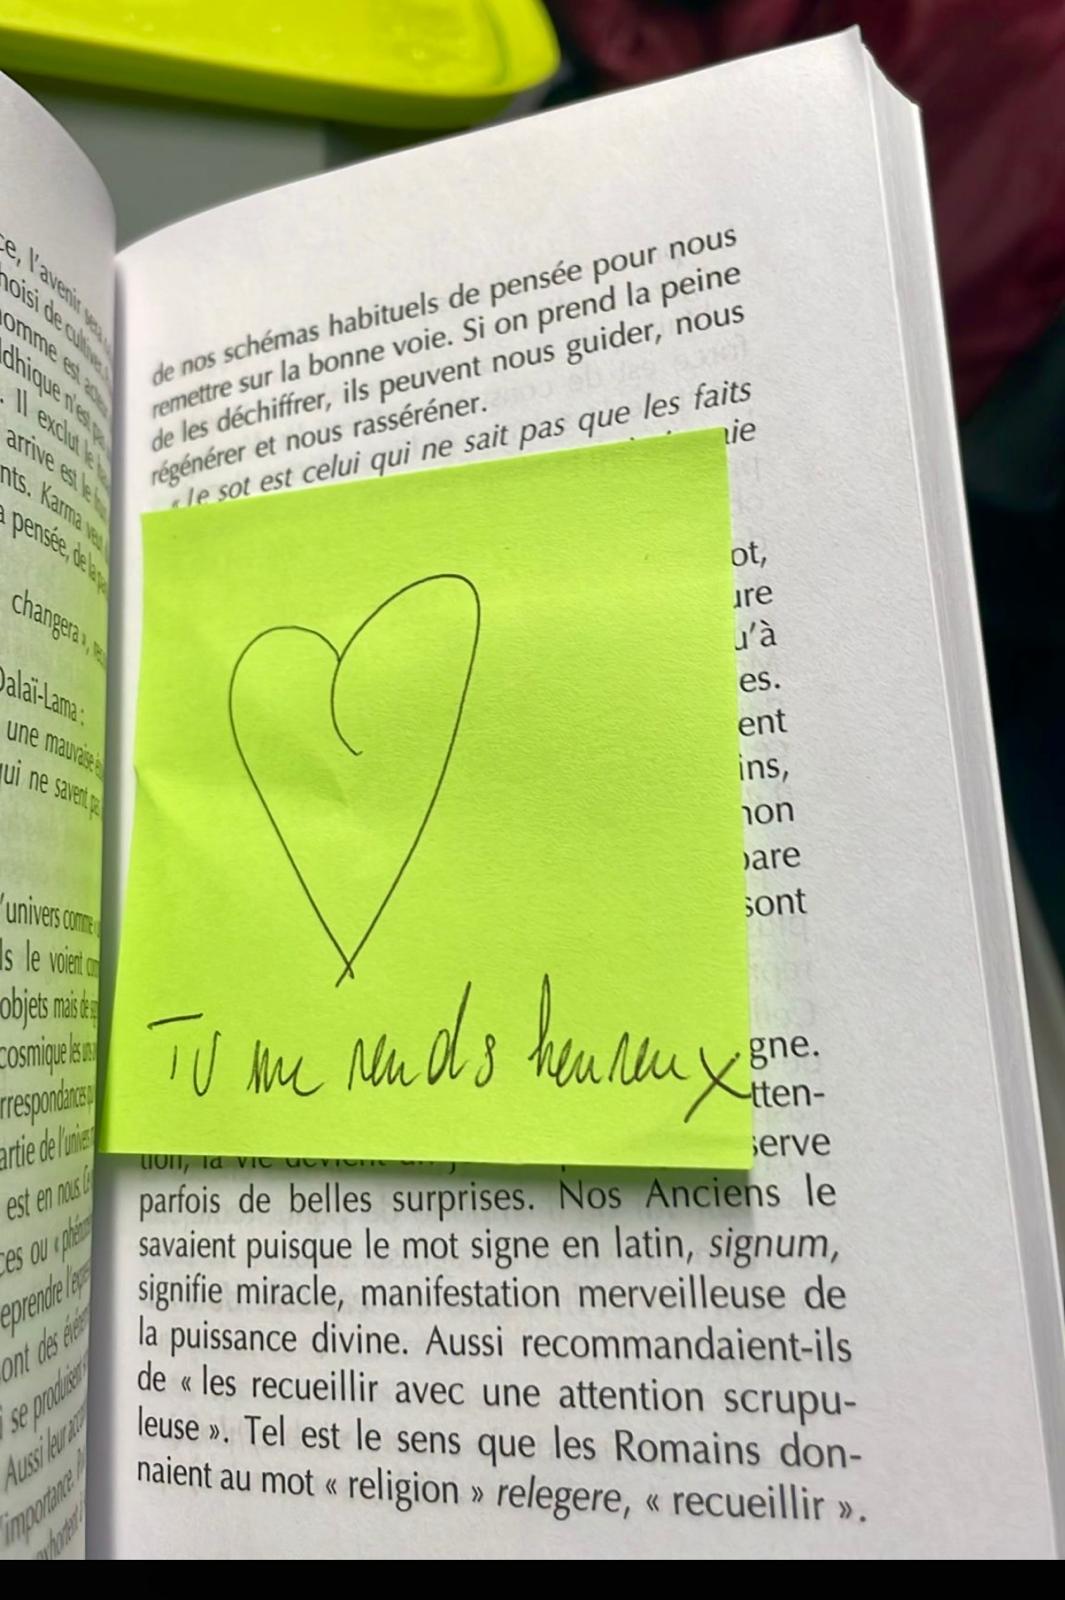 ce, l'avenir sera
hoisi de cultiver
omme est
ddhique n'est pas
. Il exclut le
arrive est le
nts. Karma veut
a pensée, de la
changera »,
Dalaï-Lama :
une mauvaise
qui ne savent pas
l'univers comme
ls le voient
objets mais de
cosmique les uns
rrespondances
artie de l'univers
est en nous.
ces ou «
eprendre
ont des
i se produisent
Aussi leur
'importance.
exhortent à
de nos schémas habituels de pensée pour nous
remettre sur la bonne voie. Si on prend la peine
de les déchiffrer, ils peuvent nous guider, nous
régénérer et nous rasséréner.
« le sot est celui qui ne sait pas que les faits
aie
ot,
ure
u'à
es.
ent
ins,
non
pare
sont
Tu me rends heureux
gne.
tten-
serve
tion, la vie devient un
parfois de belles surprises. Nos Anciens le
savaient puisque le mot signe en latin, signum,
signifie miracle, manifestation merveilleuse de
la puissance divine. Aussi recommandaient-ils
de « les recueillir avec une attention scrupu-
leuse ». Tel est le sens que les Romains don-
naient au mot « religion » relegere, « recueillir ».